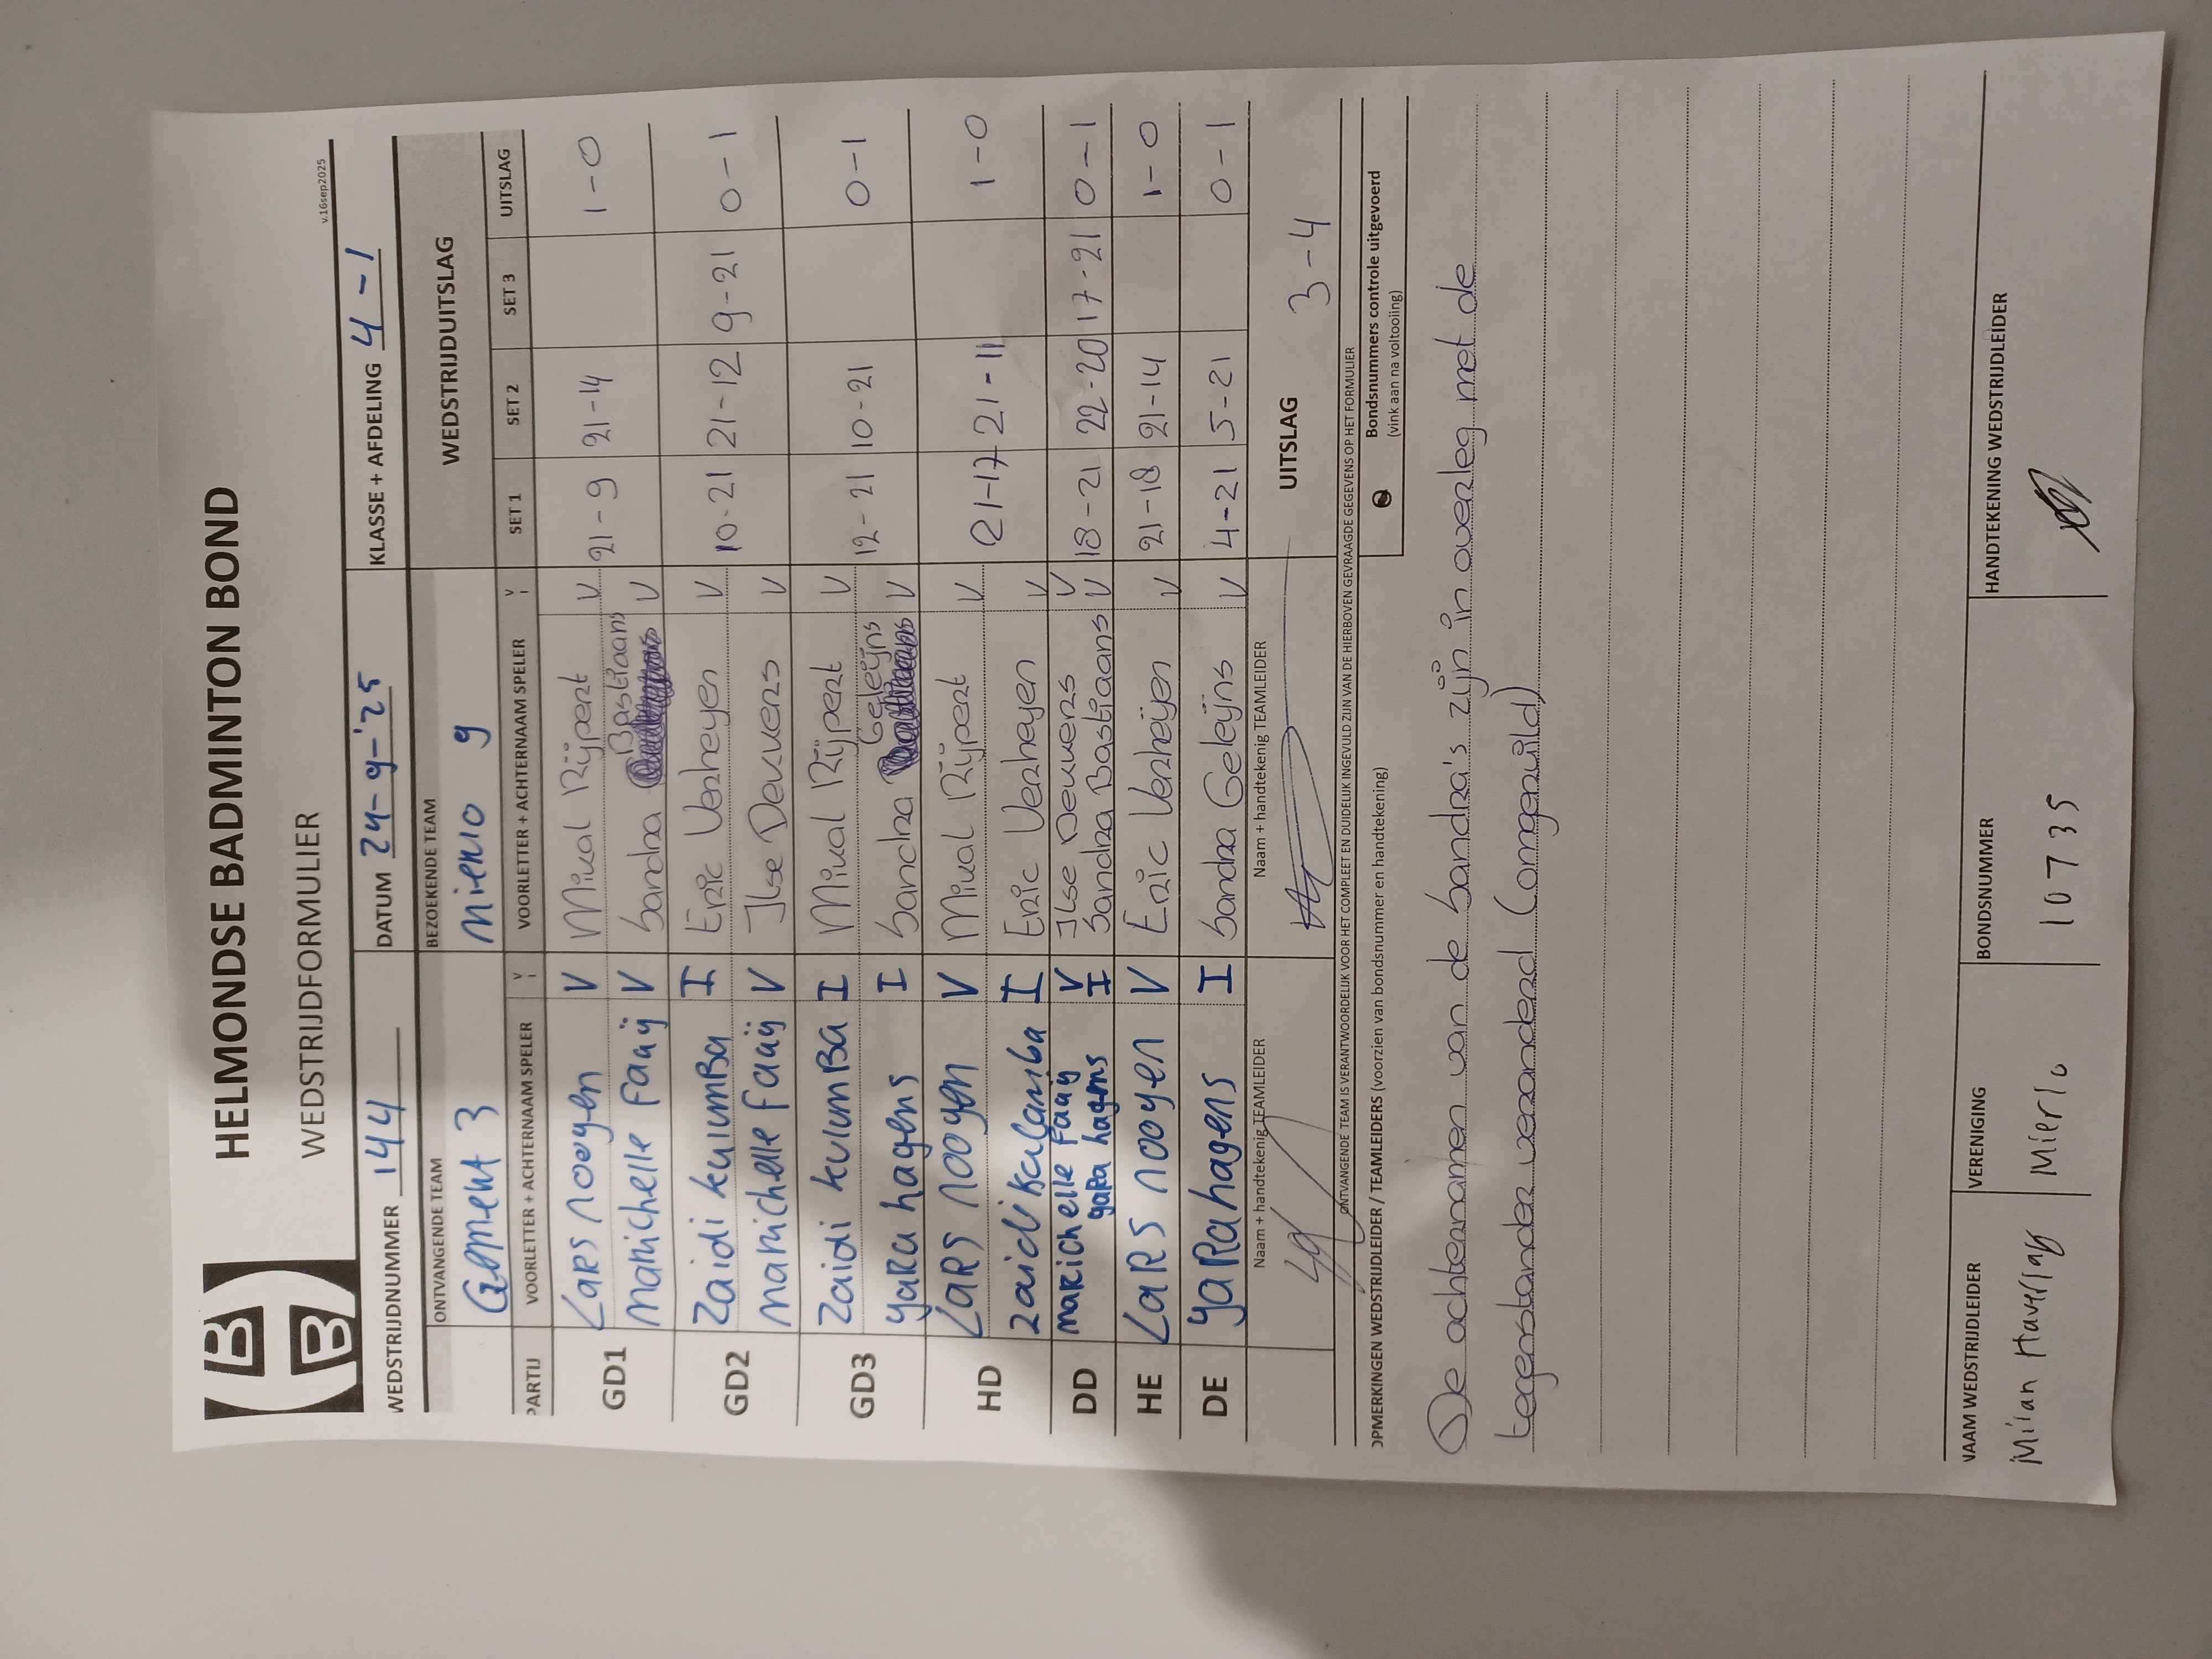 HELMONDSE BADMINTON BOND
WEDSTRIJDFORMULIER
v.16sep2025
WEDSTRIJDNUMMER 144 DATUM 24-9-'25 KLASSE + AFDELING 4-1
ONTVANGENDE TEAM BEZOEKENDE TEAM WEDSTRIJDUITSLAG
Gemert 3 Mierlo 9
PARTIJ VOORLETTER + ACHTERNAAM SPELER V I VOORLETTER + ACHTERNAAM SPELER V I SET 1 SET 2 SET 3 UITSLAG
GD1 Lars nooyen V Mikal Rijpert V 21-9 21-14 1-0
Marichelle Faaij V Sandra Bastiaans V
GD2 Zaidi kulumBa I Eric Verheyen V 10-21 21-12 9-21 0-1
Marichelle Faaij V Ilse Dekkers V
GD3 Zaidi kulumBa I Mikal Rijpert V 12-21 10-21 0-1
yaRa hagens I Sandra Geleijns V
HD LaRS nooyen V Mikal Rijpert V 21-17 21-11 1-0
I Eric Verheyen V
DD maRichelle Faaij V Ilse Dekkers V 18-21 22-20 17-21 0-1
yaRa hagens I Sandra Bastiaans V
HE LaRS nooyen V Eric Verheijen V 21-18 21-14 1-0
DE yaRa hagens I Sandra Geleijns V 4-21 5-21 0-1
Naam + handtekenig TEAMLEIDER Naam + handtekenig TEAMLEIDER UITSLAG 3-4
ONTVANGENDE TEAM IS VERANTWOORDELIJK VOOR HET COMPLEET EN DUIDELIJK INGEVULD ZIJN VAN DE HIERBOVEN GEVRAAGDE GEGEVENS OP HET FORMULIER
OPMERKINGEN WEDSTRIJDLEIDER / TEAMLEIDERS (voorzien van bondsnummer en handtekening)
Bondsnummers controle uitgevoerd
(vink aan na voltooiing)
De achternamen van de Sandra's zijn in overleg met de
tegenstander veranderd (omgeruild)
NAAM WEDSTRIJDLEIDER VERENIGING BONDSNUMMER HANDTEKENING WEDSTRIJDLEIDER
Milan Haverlag Mierlo 10735